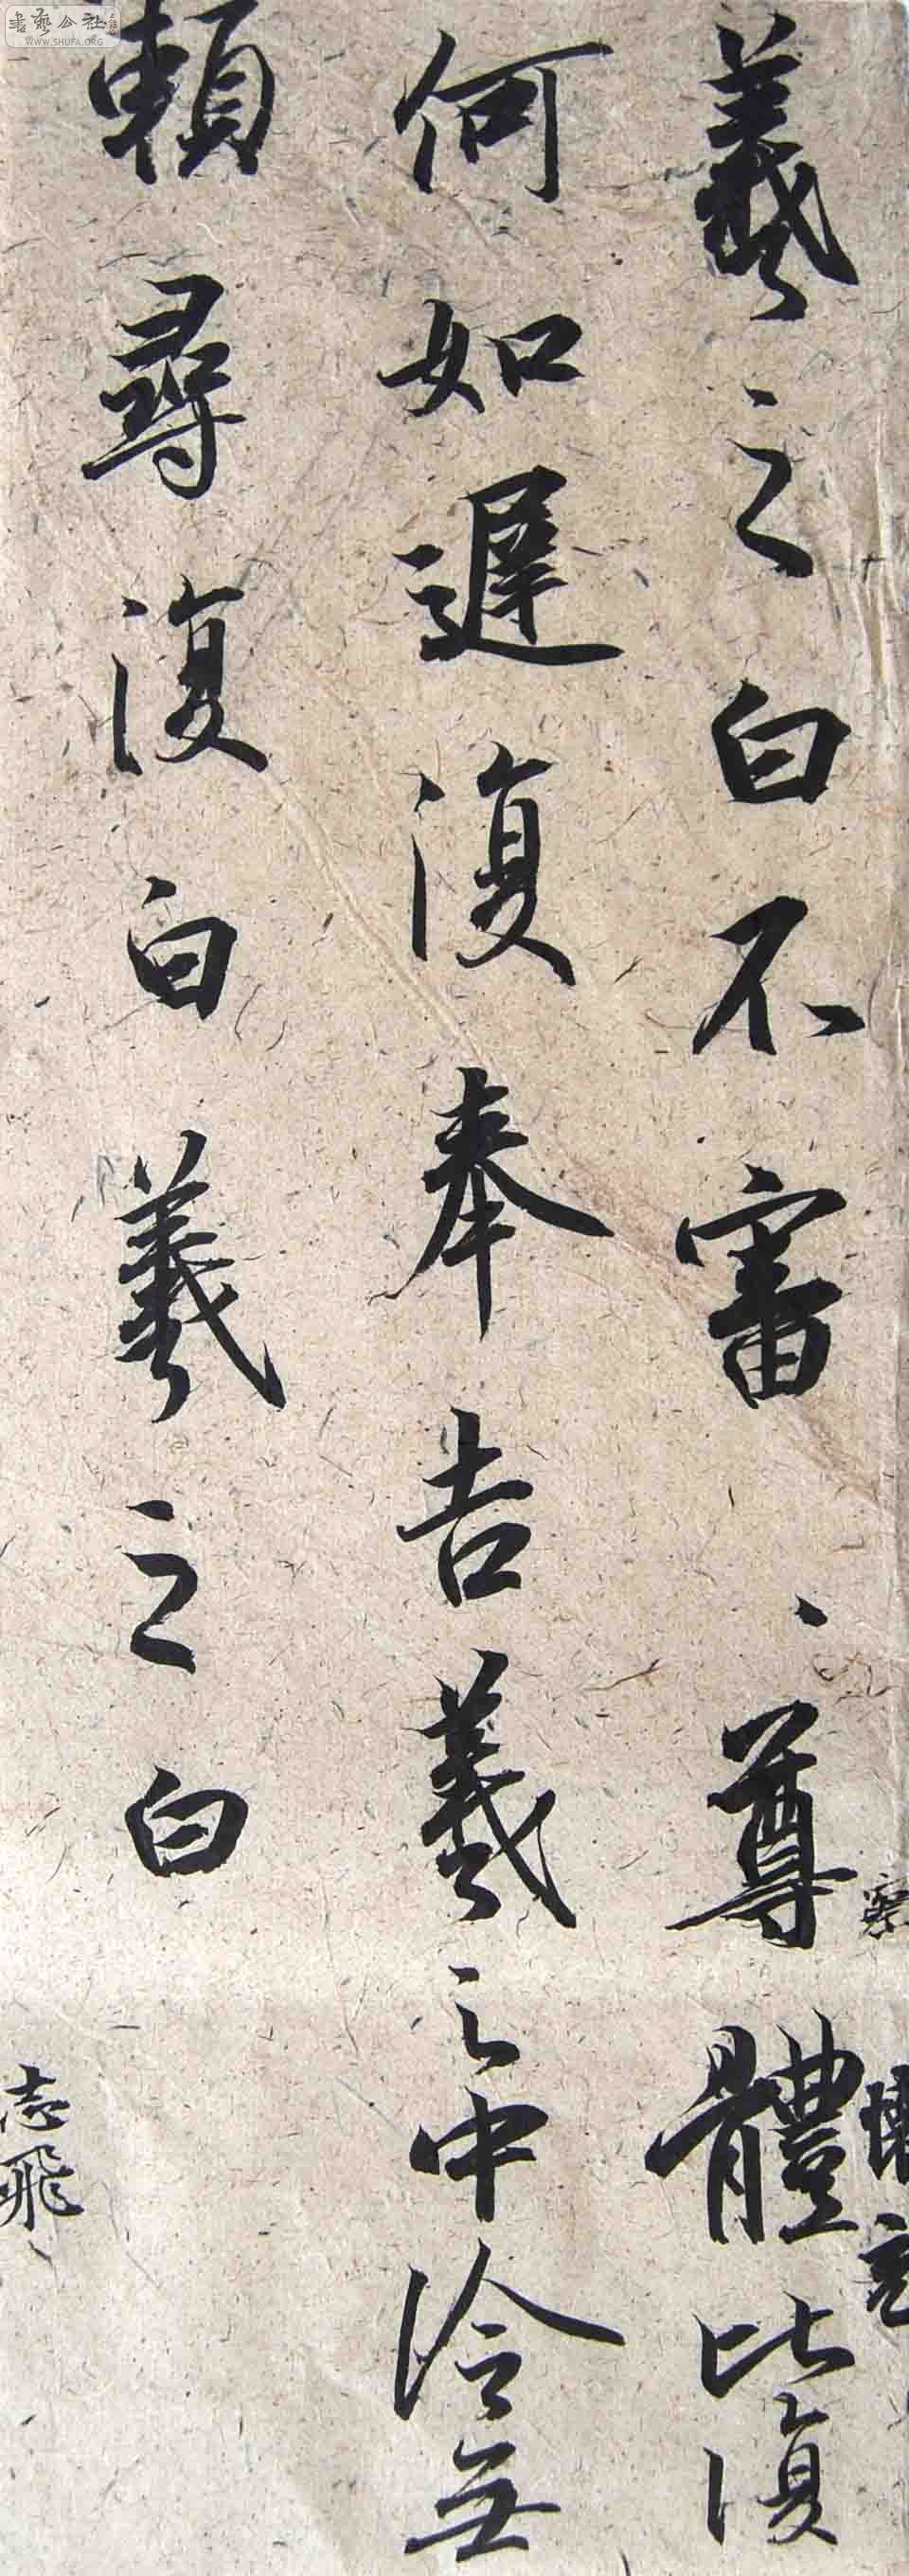 書藝公社
WWW.SHUFA.ORG
察
懷充
羲之白不審尊體比復
何如遲復奉告羲之中冷無
賴尋復白羲之白
志飛